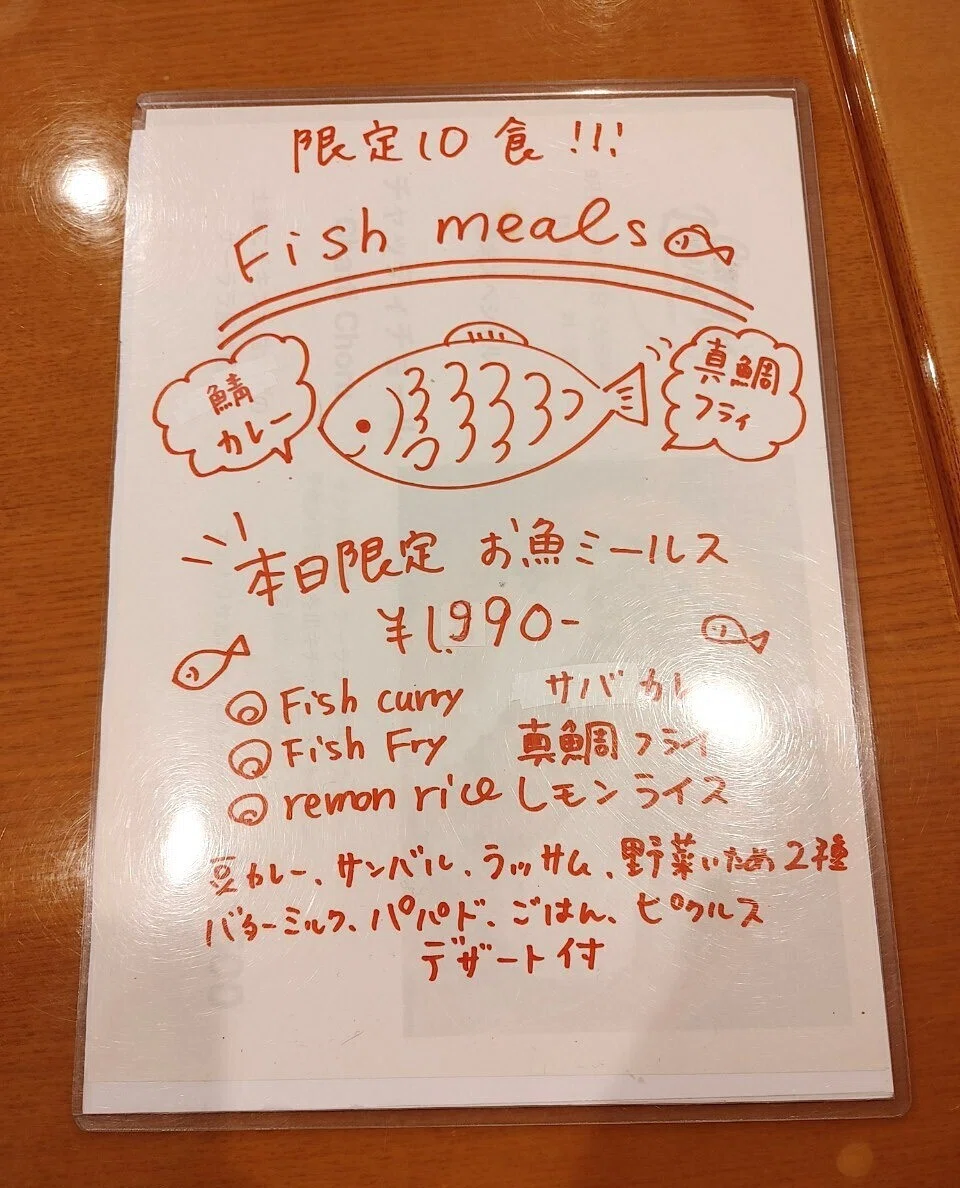 限定10食!!!
Fish meals
鯖
カレー
真鯛
フライ
本日限定 お魚ミールス
¥1,990-
Fish curry サバカレ
Fish Fry 真鯛フライ
remon rice レモンライス
豆カレー、サンバル、ラッサム、野菜いため2種
バターミルク、パパド、ごはん、ピクルス
デザート付